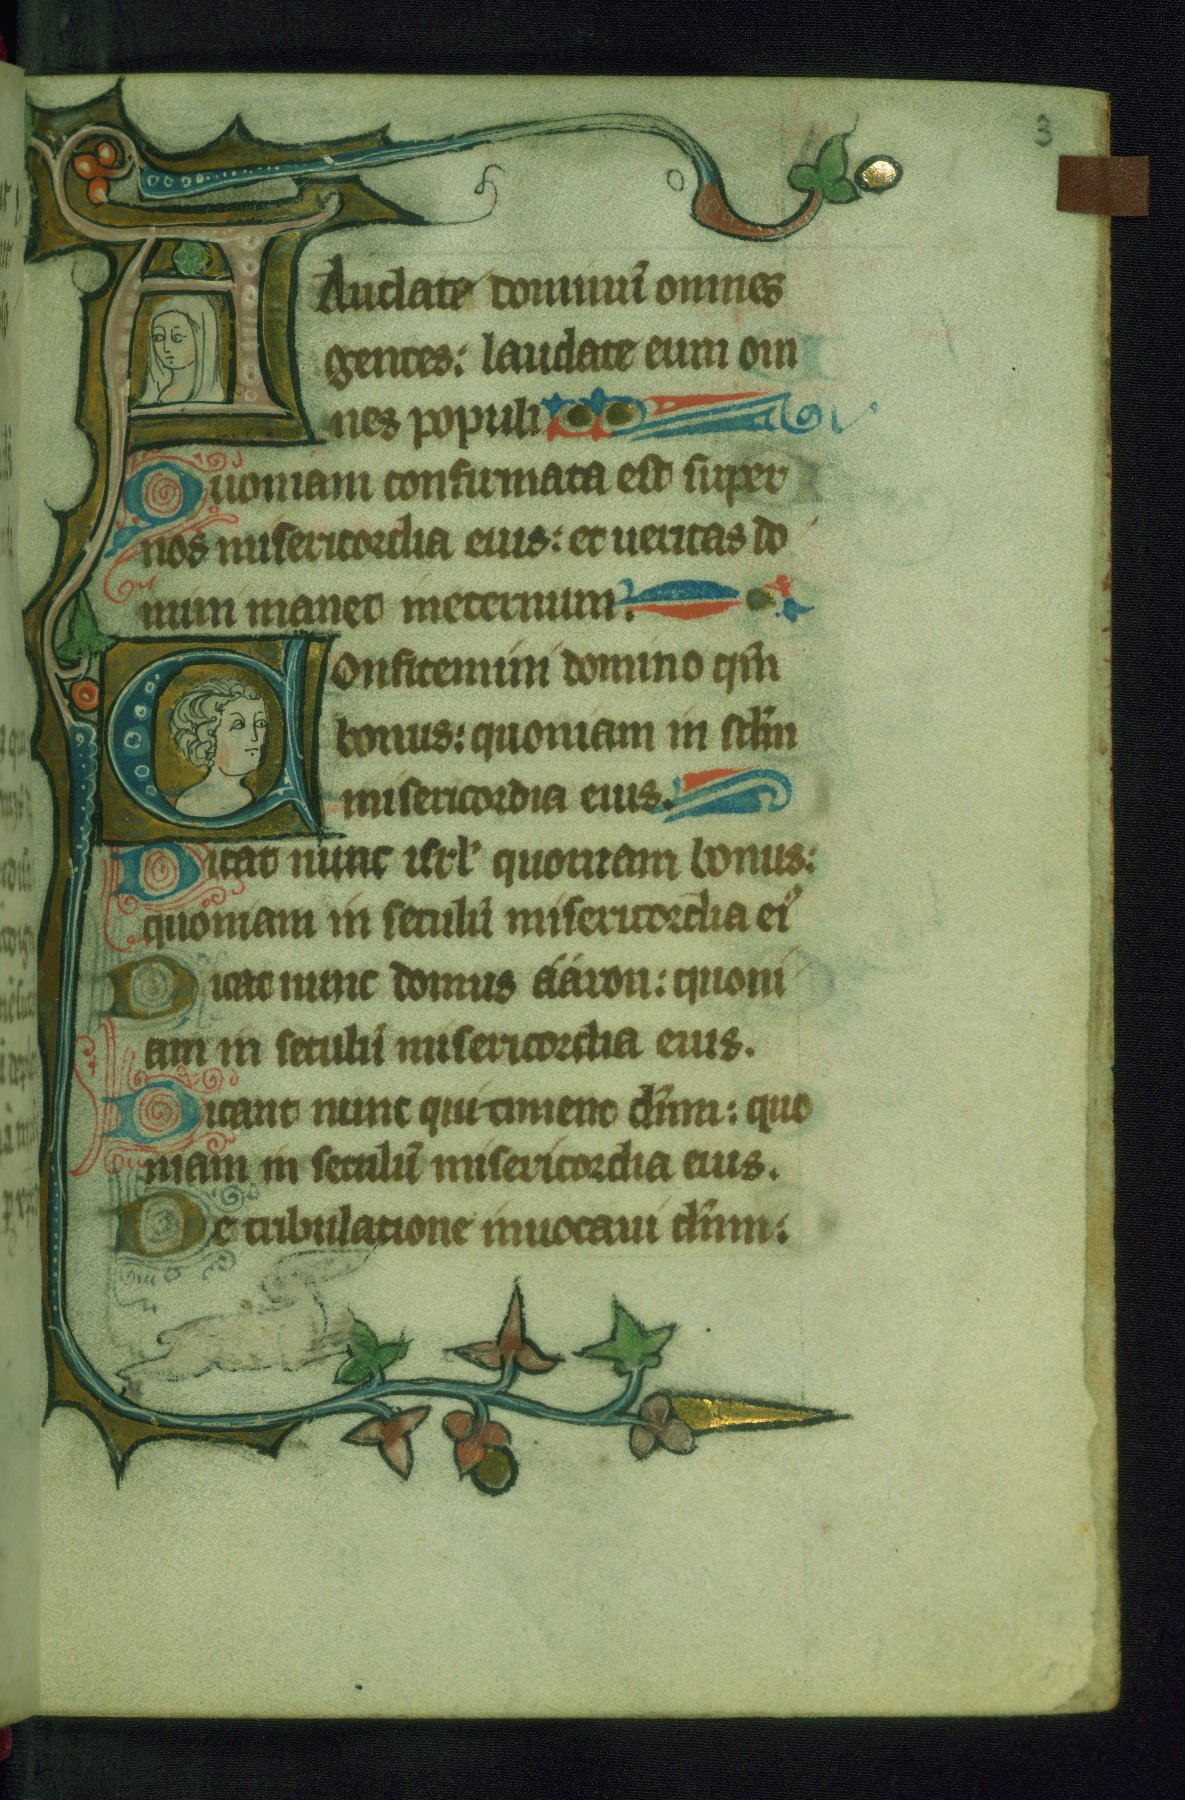 3
A Audate dominū omnes
gentes: laudate eum om
nes populi
Quoniam confirmata est super
nos misericordia eius: et ueritas do
mini manet in eternum.
COnfitemini domino qm̄
bonus: quoniam in sclm̄
misericordia eius.
Dicat nunc isrl' quoniam bonus:
quoniam in seculū misericordia ei'
Dicat nunc domus ááron: quoni
am in seculū misericordia eius.
Dicant nunc qui timent dn̄m: quo
niam in seculū misericordia eius.
De tribulatione inuocaui dn̄m: